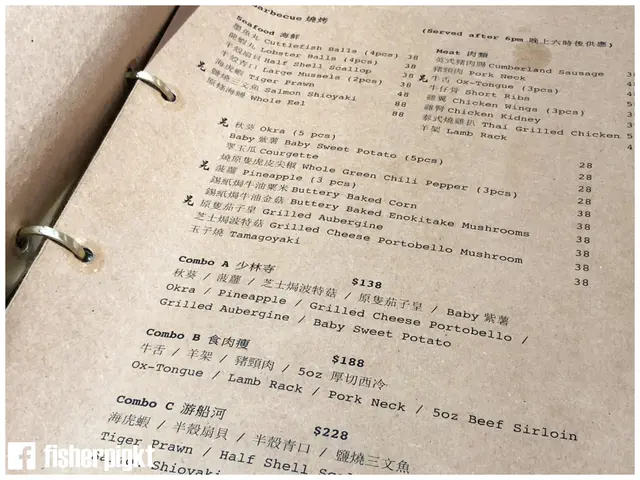 Barbecue 燒烤
(Served after 6pm 晚上六時後供應)
Seafood 海鮮
墨魚丸 Cuttlefish Balls (4pcs) 38
龍蝦丸 Lobster Balls (4pcs) 38
半殼扇貝 Half Shell Scallop 38
半殼青口 Large Mussels (2pcs) 38
海虎蝦 Tiger Prawn 48
鹽燒三文魚 Salmon Shioyaki 88
原條海鰻 Whole Eel 88
Meat 肉類
英式豬肉腸 Cumberland Sausage
豬頸肉 Pork Neck
牛舌 Ox-Tongue (3pcs)
牛仔骨 Short Ribs
雞翼 Chicken Wings (3pcs)
雞腎 Chicken Kidney
泰式燒雞扒 Thai Grilled Chicken
羊架 Lamb Rack
秋葵 Okra (5 pcs) 28
Baby 紫薯 Baby Sweet Potato (5pcs) 28
翠玉瓜 Courgette 28
燒原隻虎皮尖椒 Whole Green Chili Pepper (3pcs) 28
菠蘿 Pineapple (3 pcs) 38
錫紙焗牛油粟米 Buttery Baked Corn 38
錫紙焗牛油金菇 Buttery Baked Enokitake Mushrooms 38
原隻茄子皇 Grilled Aubergine 38
芝士焗波特菇 Grilled Cheese Portobello Mushroom 38
玉子燒 Tamagoyaki 38
Combo A 少林寺 $138
秋葵 / 菠蘿 / 芝士焗波特菇 / 原隻茄子皇 / Baby 紫薯
Okra / Pineapple / Grilled Cheese Portobello /
Grilled Aubergine / Baby Sweet Potato
Combo B 食肉獸 $188
牛舌 / 羊架 / 豬頸肉 / 5oz 厚切西冷
Ox-Tongue / Lamb Rack / Pork Neck / 5oz Beef Sirloin
Combo C 游船河 $228
海虎蝦 / 半殼扇貝 / 半殼青口 / 鹽燒三文魚
Tiger Prawn / Half Shell
Salmon Shioyaki
fisherpigkt